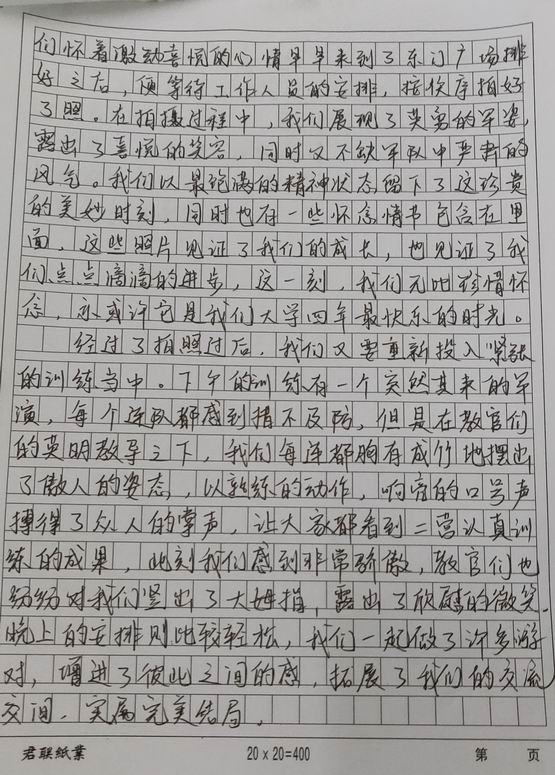 们怀着激动喜悦的心情早早来到了东门广场排
好之后，须等待工作人员的安排，按秩序拍好
了照。在拍摄过程中，我们展现了英勇的军姿，
露出了喜悦的笑容，同时又不缺军队中严肃的
风气。我们以最饱满的精神状态留下了这珍贵
的美妙时刻，同时也有一些怀念情节包含在里
面，这些照片见证了我们的成长，也见证了我
们点点滴滴的进步，这一刻，我们无比珍惜怀
念，亦或许它是我们大学四年最快乐的时光。
经过了拍照过后，我们又要重新投入紧张
的训练当中。下午的训练有一个突然其来的军
演，每个连队都感到措不及防，但是在教官们
的英明教导之下，我们每连都胸有成竹地摆出
了傲人的姿态，以熟练的动作，响亮的口号声
搏得了众人的掌声，让大家都看到二营认真训
练的成果，此刻我们感到非常骄傲，教官们也
纷纷对我们竖出了大姆指，露出了欣慰的微笑。
晚上的安排则比较轻松，我们一起做了许多游
对，增进了彼此之间的感，拓展了我们的交流
交间，实属完美结局。
君联纸业 20×20=400 第 页